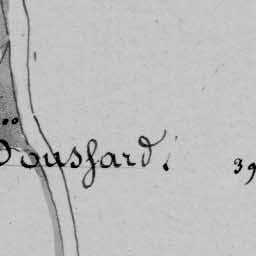 Doussard. 39